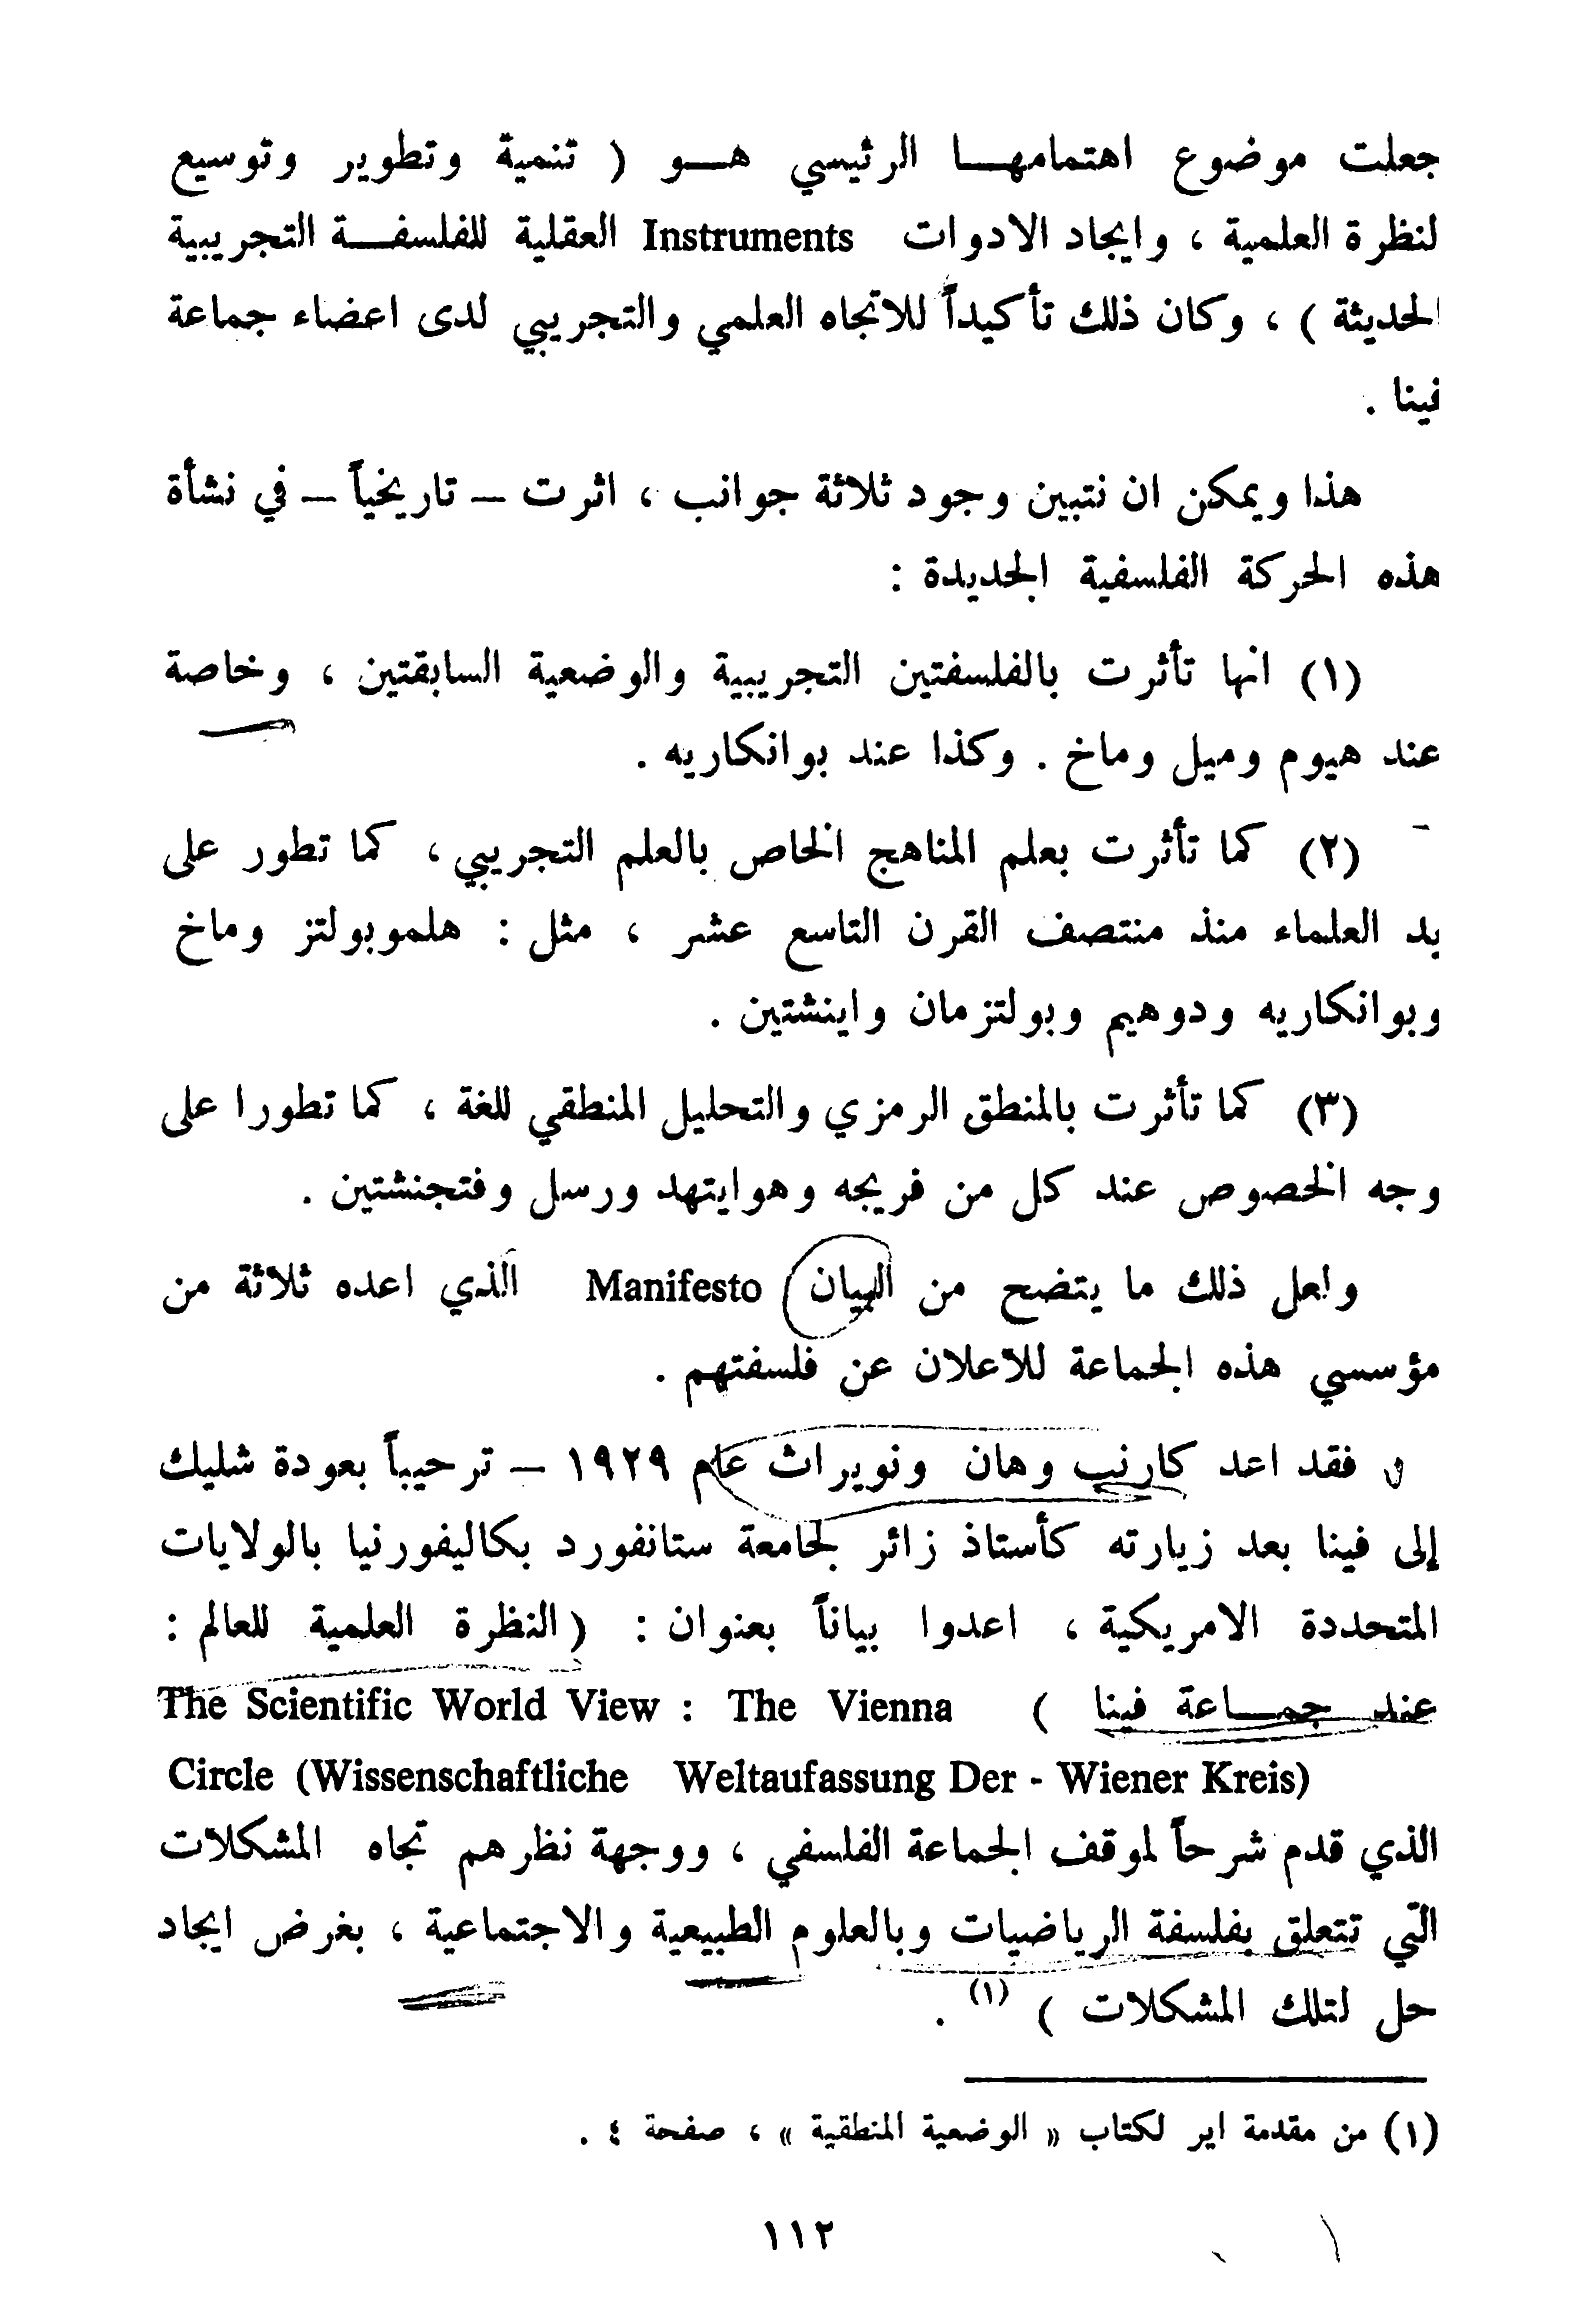 جعلت موضوع اهتمامهـا الرئيسي هـو ( تنمية وتطوير وتوسيع
لنظرة العلمية ، وايجاد الادوات Instruments العقلية للفلسفـة التجريبية
الحديثة ) ، وكان ذلك تأكيداً للاتجاه العلمي والتجريبي لدى اعضاء جماعة
فينا .
هذا ويمكن ان نتبين وجود ثلاثة جوانب ، اثرت – تاريخياً – في نشأة
هذه الحركة الفلسفية الجديدة :
(١) انها تأثرت بالفلسفتين التجريبية والوضعية السابقتين ، وخاصة
عند هيوم وميل وماخ . وكذا عند بوانكاريه .
(٢) كما تأثرت بعلم المناهج الخاص بالعلم التجريبي ، كما تطور على
يد العلماء منذ منتصف القرن التاسع عشر ، مثل : هلموبولتز وماخ
وبوانكاريه ودوهيم وبولتزمان واينشتين .
(٣) كما تأثرت بالمنطق الرمزي والتحليل المنطقي للغة ، كما تطورا على
وجه الخصوص عند كل من فريجه وهوايتهد ورسل وفتجنشتين .
ولعل ذلك ما يتضح من البيان Manifesto الذي اعده ثلاثة من
مؤسسي هذه الجماعة للاعلان عن فلسفتهم .
فقد اعد كارنب وهان ونويراث عام ١٩٢٩ – ترحيباً بعودة شليك
إلى فينا بعد زيارته كأستاذ زائر لجامعة ستانفورد بكاليفورنيا بالولايات
المتحددة الامريكية ، اعدوا بياناً بعنوان : ( النظرة العلمية للعالم :
عند جمـاعة فينا ) The Scientific World View : The Vienna
Circle (Wissenschaftliche Weltaufassung Der - Wiener Kreis)
الذي قدم شرحاً لموقف الجماعة الفلسفي ، ووجهة نظرهم تجاه المشكلات
التي تتعلق بفلسفة الرياضيات وبالعلوم الطبيعية والاجتماعية ، بغرض ايجاد
حل لتلك المشكلات ) (١) .
(١) من مقدمة اير لكتاب « الوضعية المنطقية » ، صفحة ٤ .
١١٢